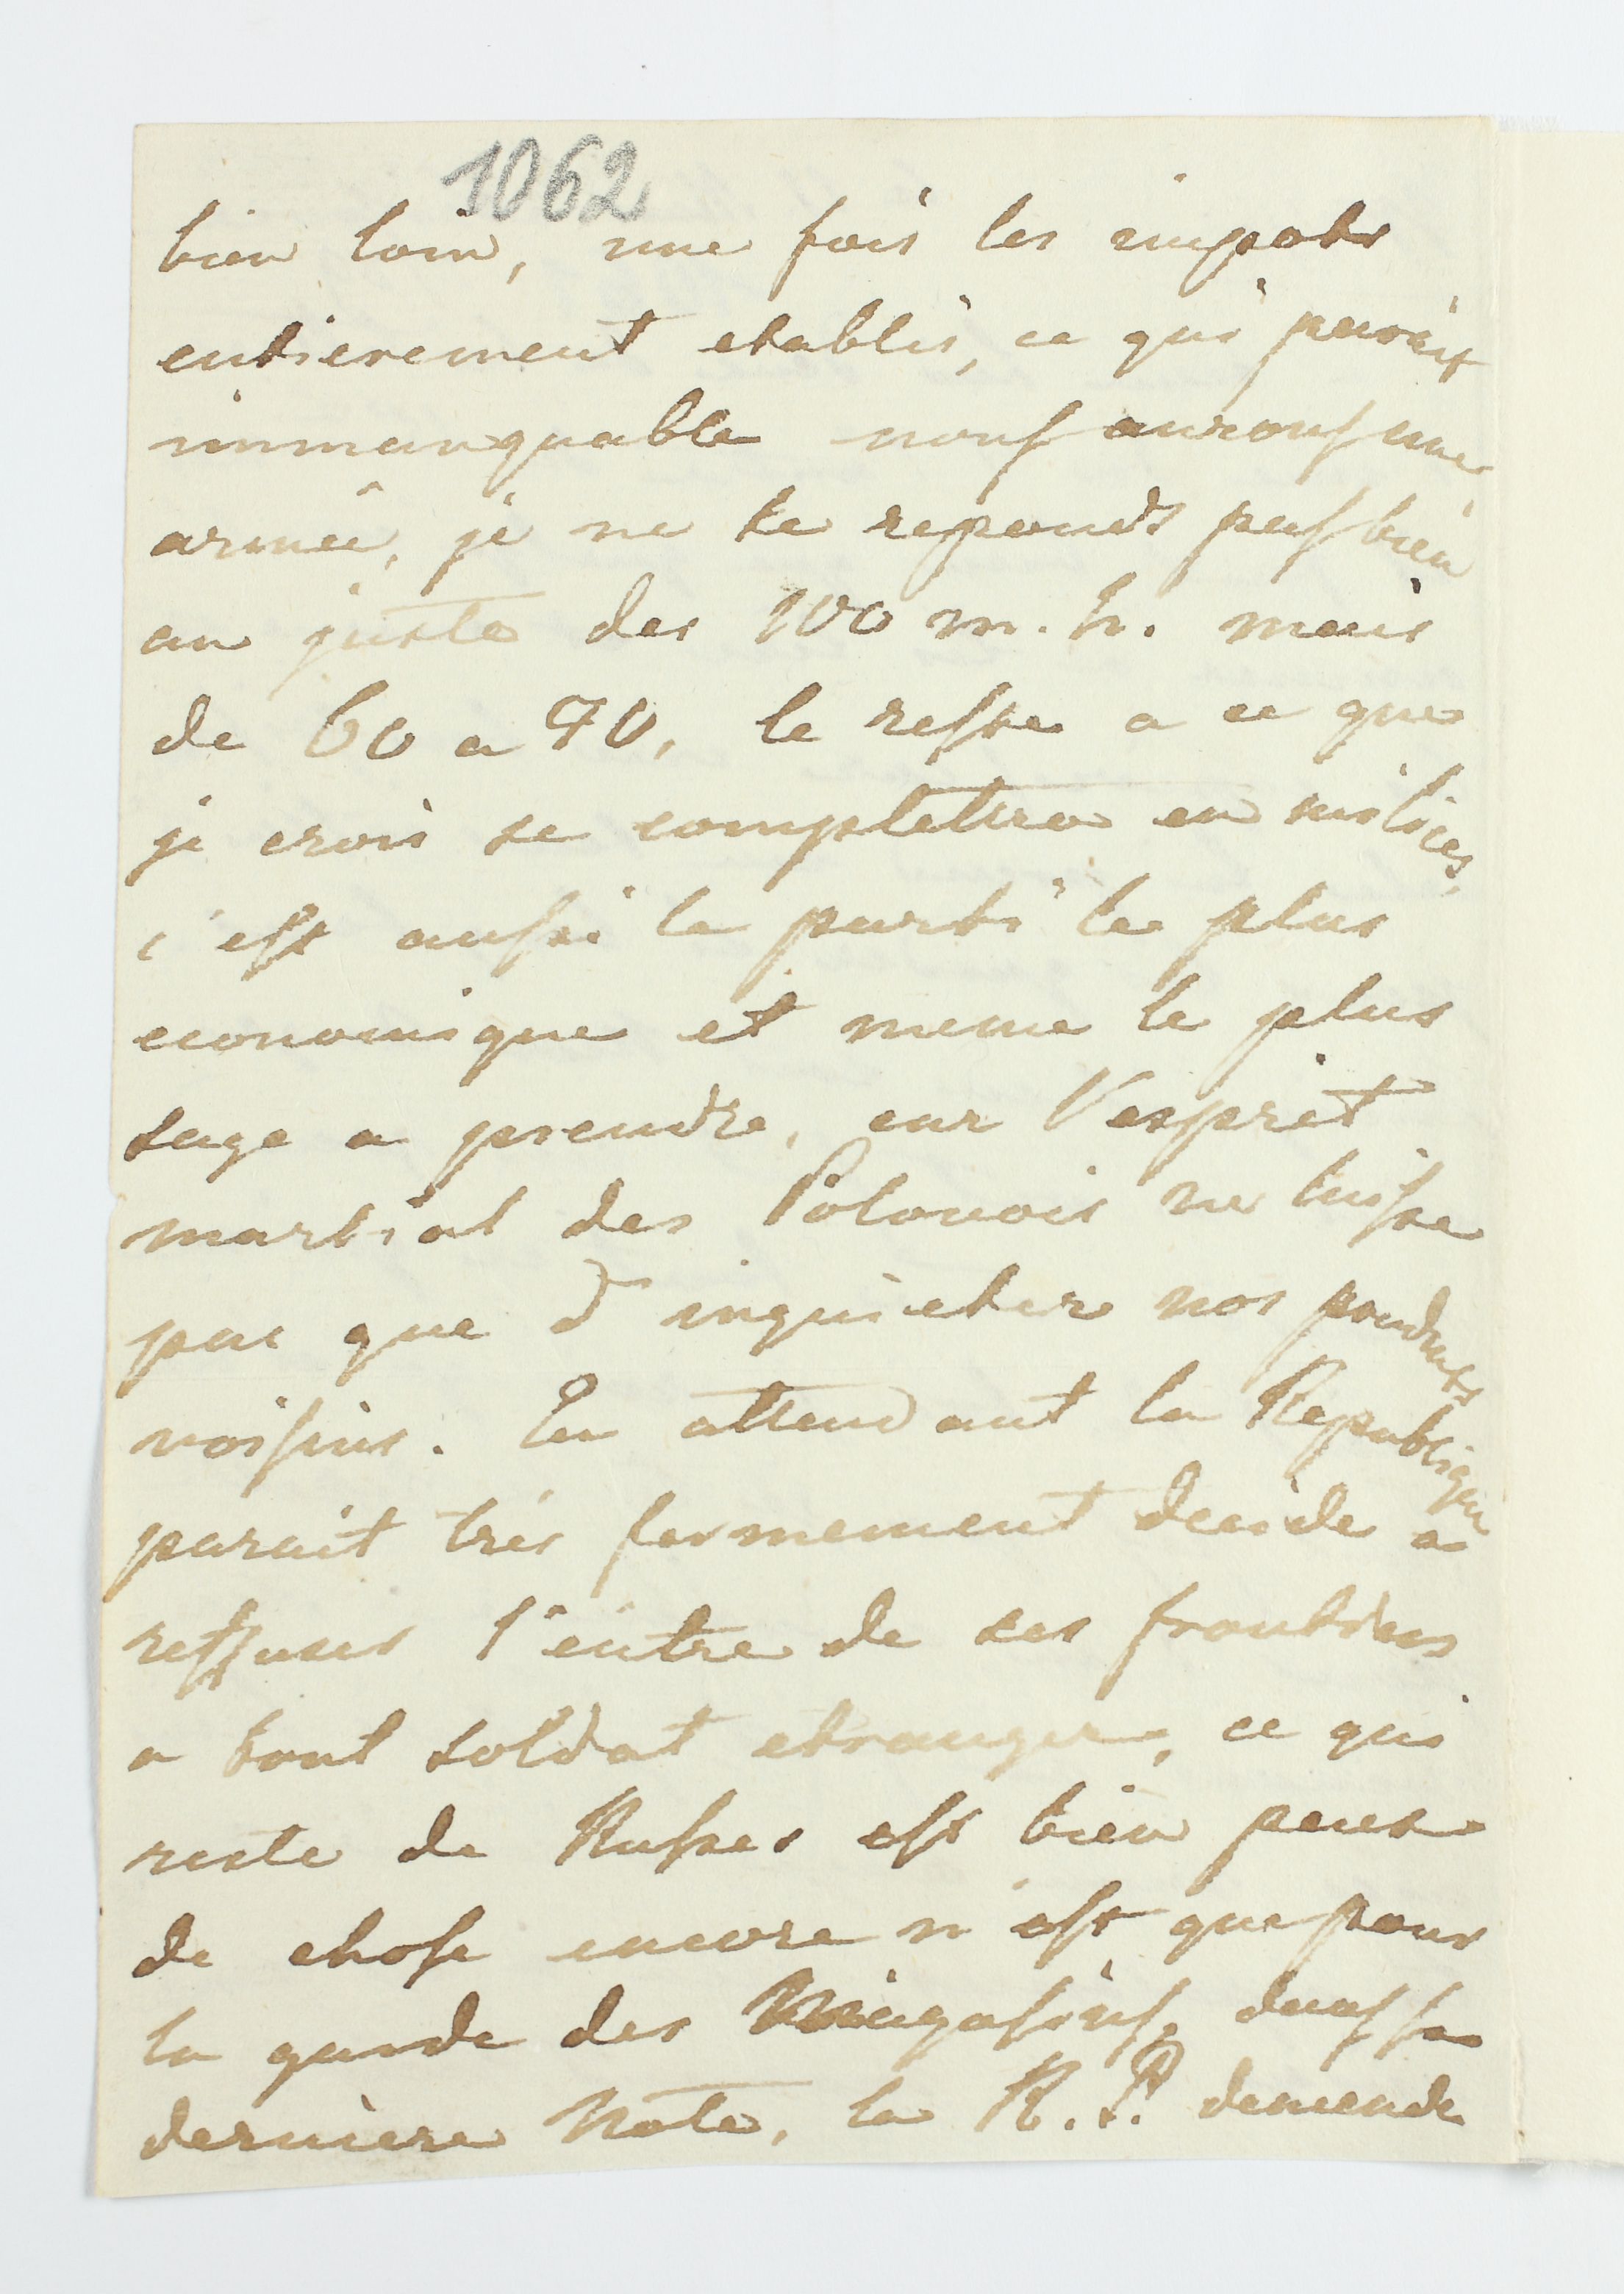 1062
bien loin, une fois les impots
entierement etablis, ce qui parait
immanquable nous aurons une
armée, je ne te reponds pas bien
au juste des 100 m. h. mais
de 60 a 70, le reste a ce que
je crois se complettera en milices,
c'est aussi le parti le plus
economique et meme le plus
sage a prendre, car l'esprit
martial des Polonois ne laisse
pas que d'inquieter nos prudents
voisins. En attendant la Republique
parait très fermement decide a
reffuser l'entre de ses frontiers
a tout soldat etranger, ce qui
reste de Russes est bien peu
de chose encore n'est que pour
la garde des Magasins, dans sa
derniere Note, la R. P. demende